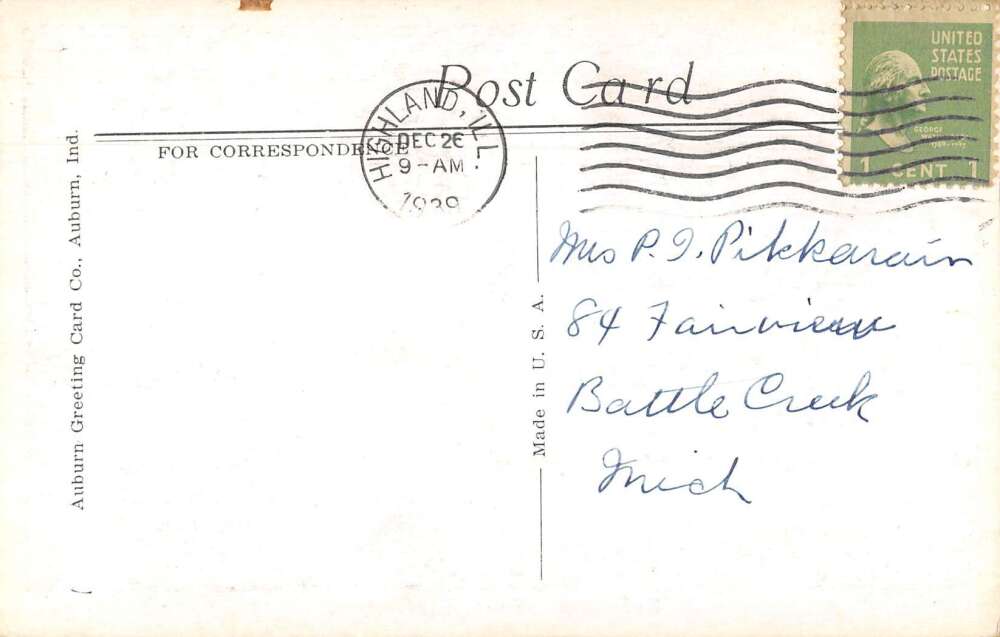 Post Card
FOR CORRESPONDENCE
HIGHLAND, ILL.
DEC 26
9-AM
1939
UNITED
STATES
POSTAGE
GEORGE
1 CENT 1
Auburn Greeting Card Co., Auburn, Ind.
Made in U. S. A.
Mrs P. I. Pikkarain
84 Fairview
Battle Creek
Mich